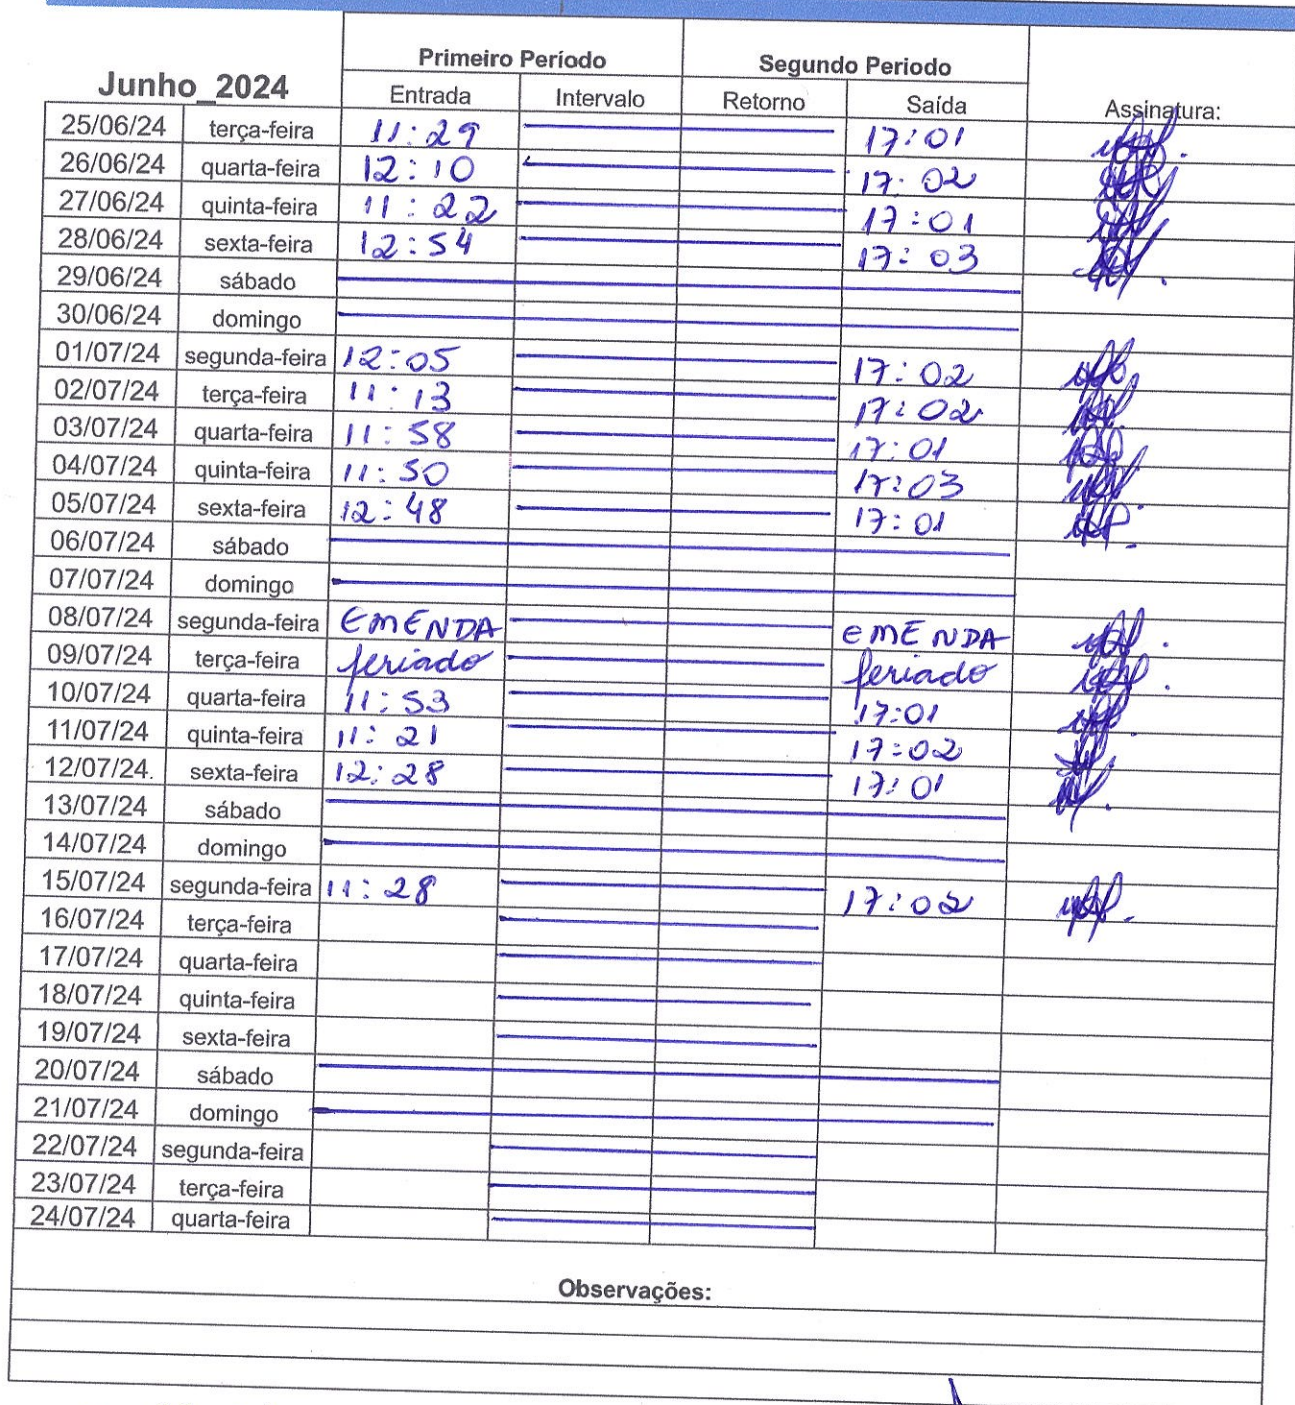 Primeiro Período Segundo Periodo
Junho_2024 Entrada Intervalo Retorno Saída Assinatura:
25/06/24 terça-feira 11:29 17:01
26/06/24 quarta-feira 12:10 17:02
27/06/24 quinta-feira 11:22 17:01
28/06/24 sexta-feira 12:54 17:03
29/06/24 sábado
30/06/24 domingo
01/07/24 segunda-feira 12:05 17:02
02/07/24 terça-feira 11:13 17:02
03/07/24 quarta-feira 11:58 17:01
04/07/24 quinta-feira 11:50 17:03
05/07/24 sexta-feira 12:48 17:01
06/07/24 sábado
07/07/24 domingo
08/07/24 segunda-feira EMENDA EMENDA
09/07/24 terça-feira feriado feriado
10/07/24 quarta-feira 11:53 17:01
11/07/24 quinta-feira 11:21 17:02
12/07/24. sexta-feira 12:28 17:01
13/07/24 sábado
14/07/24 domingo
15/07/24 segunda-feira 11:28 17:02
16/07/24 terça-feira
17/07/24 quarta-feira
18/07/24 quinta-feira
19/07/24 sexta-feira
20/07/24 sábado
21/07/24 domingo
22/07/24 segunda-feira
23/07/24 terça-feira
24/07/24 quarta-feira
Observações: